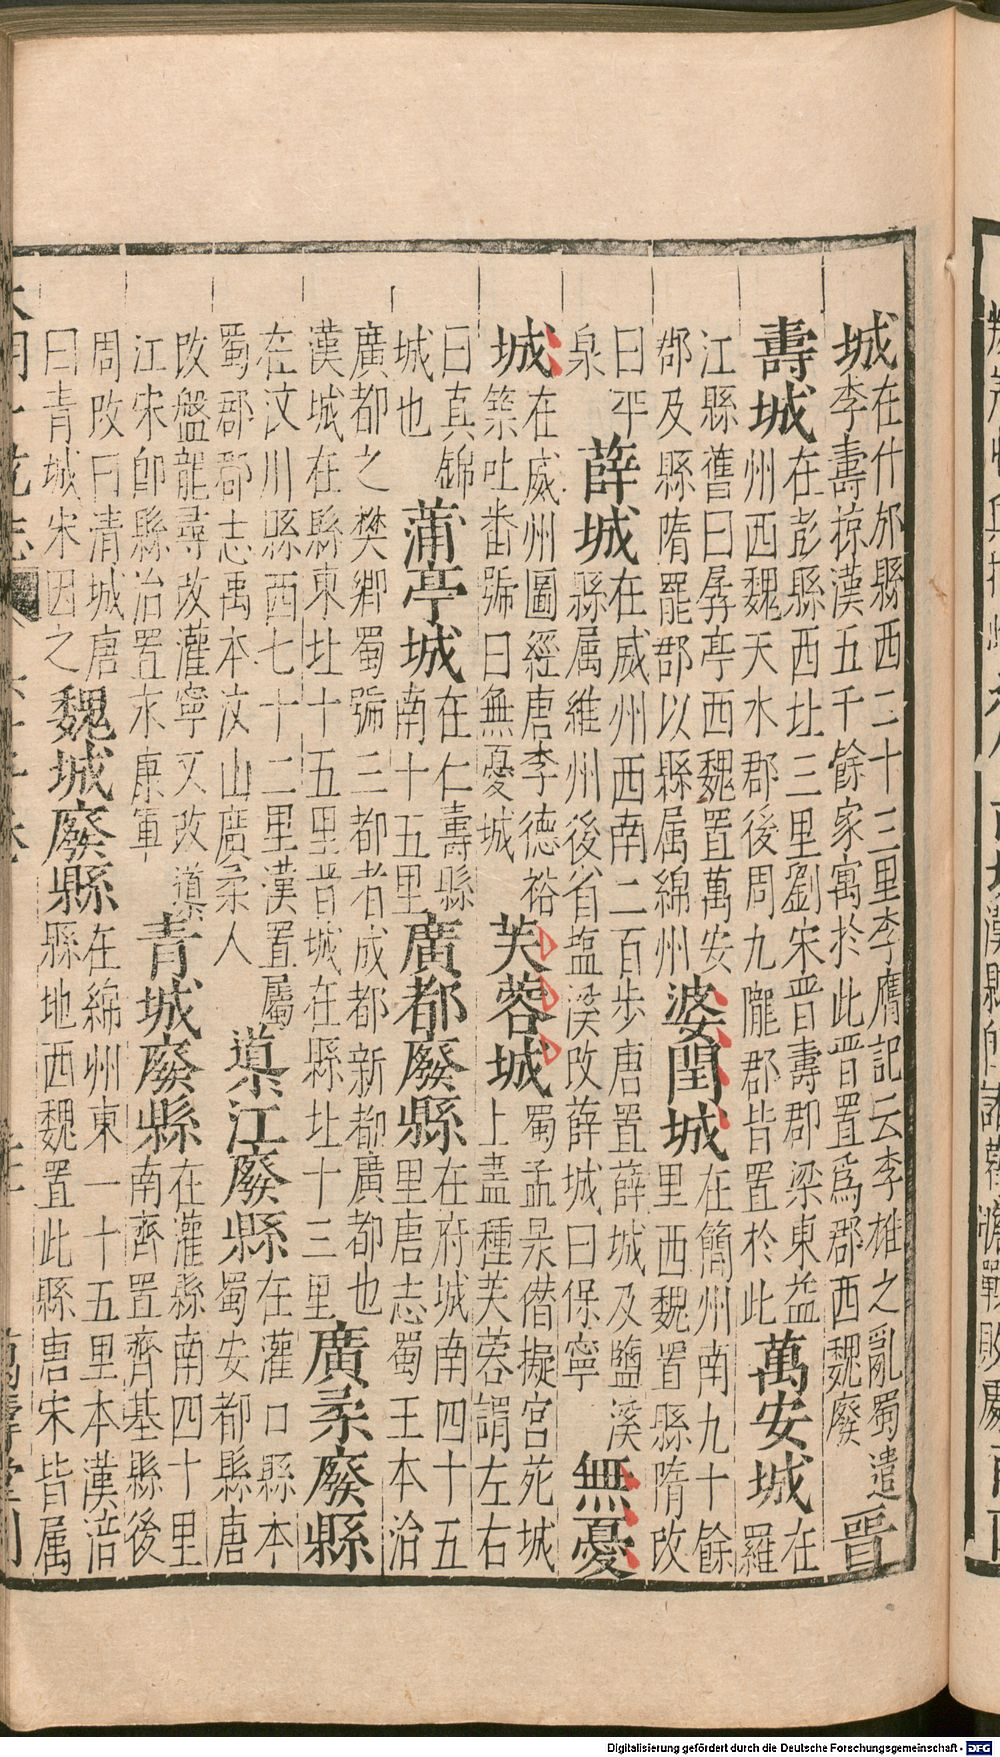 城
在什邡縣西二十三里李膺記云李雄之亂蜀遣
李壽掠漢五千餘家寓於此晋置爲郡西魏廢
晋
壽城
在彭縣西北三里劉宋晋壽郡梁東益
州西魏天水郡後周九隴郡皆置於此
萬安城
在
羅
江縣舊曰孱亭西魏置萬安
郡及縣隋罷郡以縣属綿州
婆閏城
在簡州南九十餘
里西魏置縣隋改
曰平
泉
薛城
在威州西南二百步唐置薛城及鹽溪
縣属維州後省塩溪改薛城曰保寧
無憂
城
在威州圖經唐李德裕
築吐番號曰無憂城
芙蓉城
蜀孟昶僣擬宮苑城
上盡種芙蓉謂左右
曰真錦
城也
蒲亭城
在仁壽縣
南十五里
廣都廢縣
在府城南四十五
里唐志蜀王本治
廣都之樊鄉蜀號三都者成都新都廣都也
漢城在縣東北十五里晋城在縣北十三里
廣柔廢縣
在汶川縣西七十二里漢置屬
蜀郡郡志禹本汶山廣柔人
導江廢縣
在灌口縣本
蜀安都縣唐
改盤龍尋改灌寧又改導
江宋卽縣治置永康軍
青城廢縣
在灌縣南四十里
南齊置齊基縣後
周改曰清城唐
曰青城宋因之
魏城廢縣
在綿州東一十五里本漢涪
縣地西魏置此縣唐宋皆属
Digitalisierung gefördert durch die Deutsche Forschungsgemeinschaft - DFG